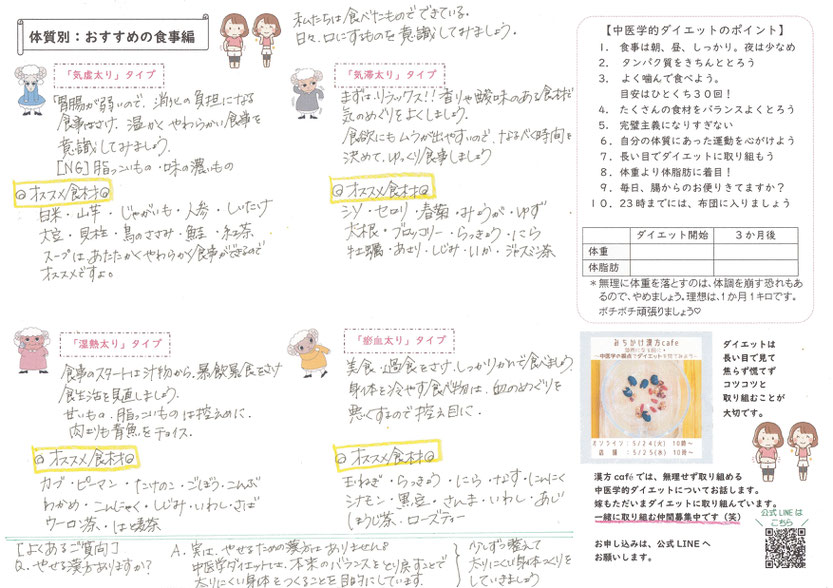 体質別：おすすめの食事編
私たちは食べたものでできている。
日々、口にするものを意識してみましょう。
「気虚太り」タイプ
胃腸が弱いので、消化の負担になる
食事はさけ、温かくやわらかい食事を
意識してみましょう。
[NG]脂っこいもの・味の濃いもの
◎オススメ食材◎
白米・山芋・じゃがいも・人参・しいたけ
大豆・貝柱・鳥のささみ・鮭・紅茶
スープはあたたかくやわらかい食事ができるので
オススメですよ。
「気滞太り」タイプ
まずは、リラックス!!香りや酸味のある食材で
気のめぐりをよくしましょう。
食欲にもムラが出やすいので、なるべく時間を
決めて、ゆっくり食事しましょう
◎オススメ食材◎
シソ・セロリ・春菊・みょうが・ゆず
大根・ブロッコリー・らっきょう・にら
牡蠣・あさり・しじみ・いか・ジャスミン茶
「湿熱太り」タイプ
食事のスタートは汁物から。暴飲暴食をさけ
食生活を見直しましょう。
甘いもの、脂っこいものは控えめに。
肉よりも青魚をチョイス。
◎オススメ食材◎
カブ・ピーマン・たけのこ・ごぼう・こんぶ
わかめ・こんにゃく・しじみ・いわし・さば
ウーロン茶・はと麦茶
「瘀血太り」タイプ
美食・過食をさけ、しっかりかんで食べましょう
身体を冷やす食べ物は、血のめぐりを
悪くするので控え目に。
◎オススメ食材◎
玉ねぎ・らっきょう・にら・なす・にんにく
シナモン・黒豆・さんま・いわし・あじ
ほうじ茶・ローズティー
[よくあるご質問]
Q.やせる漢方ありますか?
A.実は、やせるための漢方はありません。
中医学ダイエットは、本来のバランスをとり戻すことで
太りにくい身体をつくることを目的にしています。
少しずつ整えて
太りにくい身体つくりを
していきましょう
【中医学的ダイエットのポイント】
1．食事は朝、昼、しっかり。夜は少なめ
2．タンパク質をきちんととろう
3．よく噛んで食べよう。
目安はひとくち30回！
4．たくさんの食材をバランスよくとろう
5．完璧主義になりすぎない
6．自分の体質にあった運動を心がけよう
7．長い目でダイエットに取り組もう
8．体重より体脂肪に着目！
9．毎日、腸からのお便りきてますか？
10．23時までには、布団に入りましょう
ダイエット開始 3か月後
体重
体脂肪
＊無理に体重を落とすのは、体調を崩す恐れもあ
るので、やめましょう。理想は、1か月1キロです。
ボチボチ頑張りましょう♡
みちかけ漢方cafe
中医学の観点でダイエットを
オンライン：5/24(火) 10時～
店舗：5/25(水) 10時～
ダイエットは
長い目で見て
焦らず慌てず
コツコツと
取り組むことが
大切です。
漢方caféでは、無理せず取り組める
中医学的ダイエットについてお話します。
嫁もただいまダイエットに取り組んでいます。
一緒に取り組む仲間募集中です（笑）
お申し込みは、公式LINEへ
お願いします。
公式LINEは
こちら